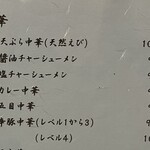 華
天ぷら中華(天然えび) 10
醤油チャーシューメン
塩チャーシューメン
カレー中華
五目中華
辛豚中華(レベル1から3)
(レベル4) 10